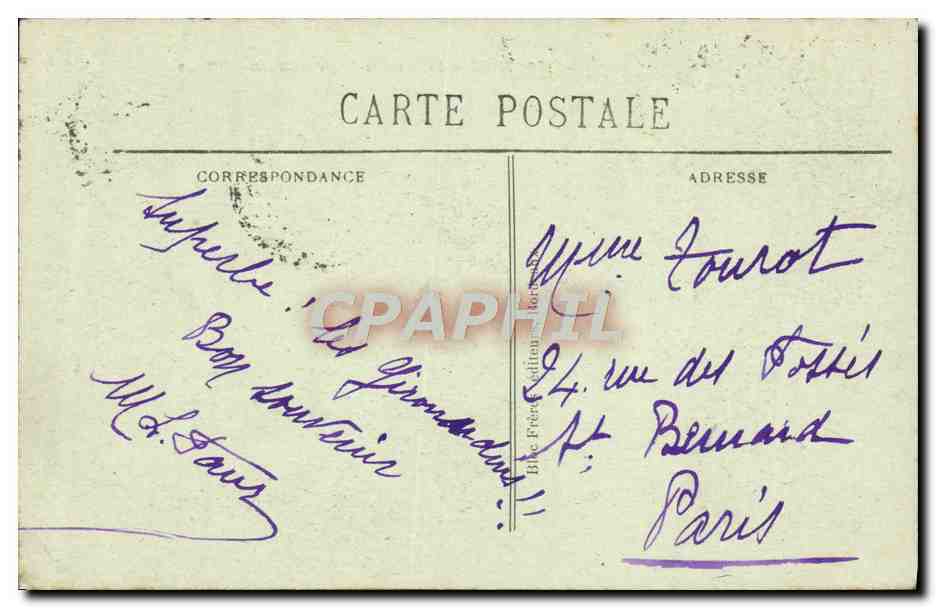 CARTE POSTALE
CORRESPONDANCE
ADRESSE
Superbe, les Girondins!!
Bon souvenir
M L.
Mme Tourot
24. rue des Fossés
St. Bernard
Paris
Bloc Frères, éditeurs, Bordeaux
CPAPHIL